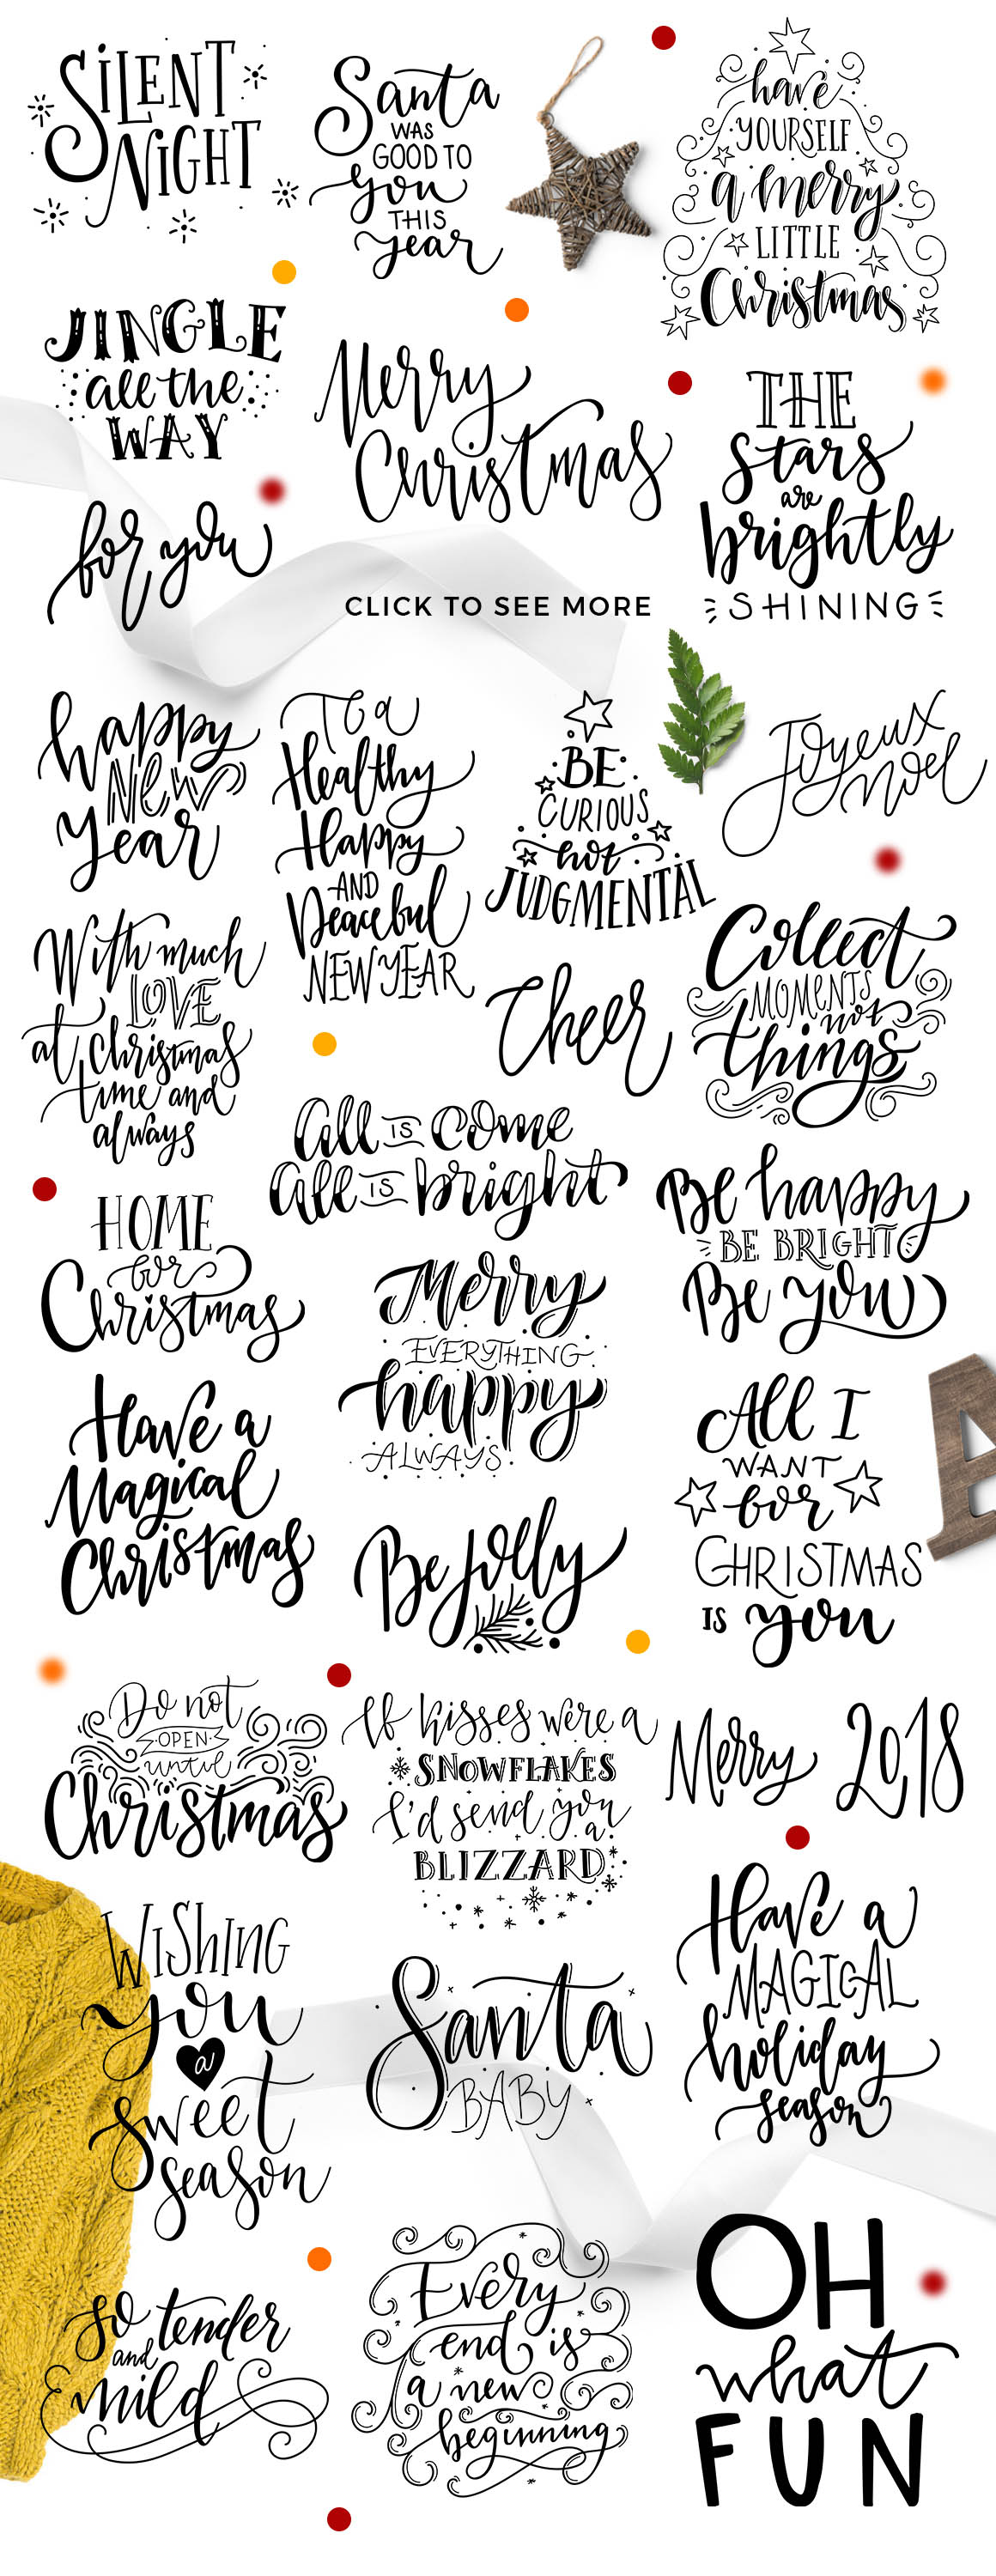 SILENT
NIGHT
Santa
WAS
GOOD TO
you
THIS
year
have
YOURSELF
a merry
LITTLE
Christmas
JINGLE
all the
WAY
Merry
Christmas
THE
stars
are
brightly
SHINING
for you
CLICK TO SEE MORE
happy
New
Year
To a
Healthy
Happy
AND
Peaceful
NEW YEAR
BE
CURIOUS
not
JUDGMENTAL
Joyeux
noel
With much
LOVE
at Christmas
time and
always
Cheer
Collect
MOMENTS
not
things
All IS come
All IS bright
HOME
for
Christmas
Be happy
BE BRIGHT
Be you
Merry
EVERYTHING
happy
ALWAYS
Have a
Magical
Christmas
All I
WANT
for
CHRISTMAS
IS you
A
Be jolly
Do not
OPEN
until
Christmas
If kisses were a
SNOWFLAKES
I'd send you
a
BLIZZARD
Merry 2018
WISHING
you
a
sweet
season
Santa
BABY
Have a
MAGICAL
holiday
season
so tender
and
mild
Every
end is
a new
beginning
OH
what
FUN